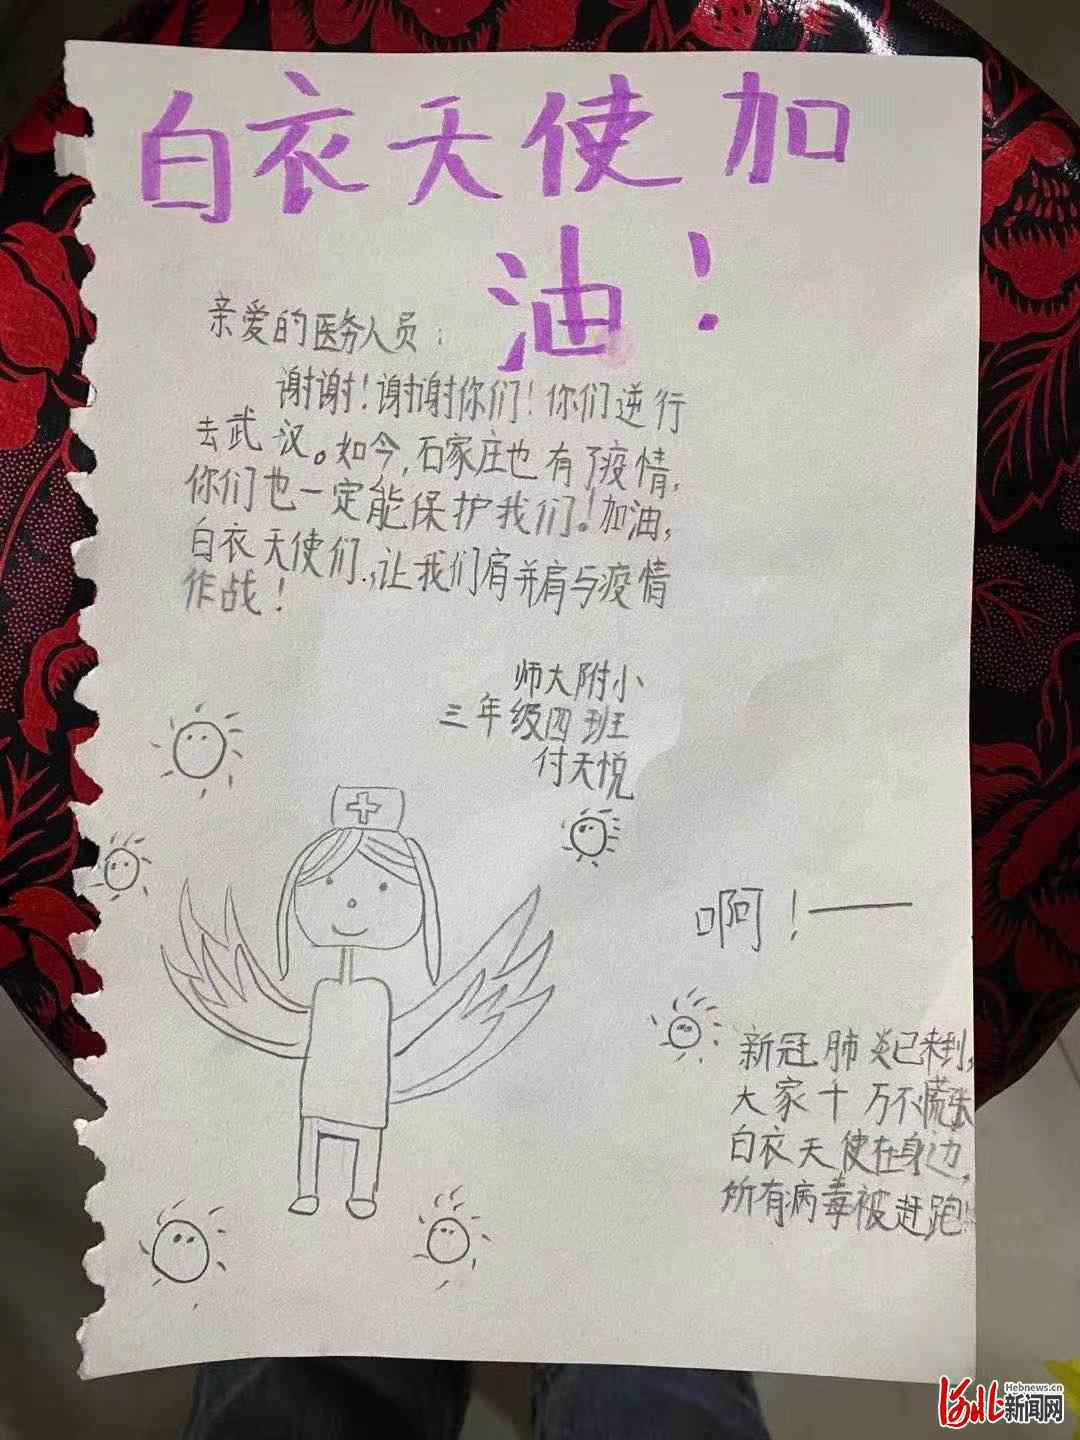 白衣天使加
油!
亲爱的医务人员:
谢谢!谢谢你们!你们逆行
去武汉。如今,石家庄也有了疫情,
你们也一定能保护我们。!加油,
白衣天使们,让我们肩并肩与疫情
作战!
师大附小
三年级四班
付天悦
啊!——
新冠肺炎已来到,
大家十万不慌张
白衣天使在身边,
所有病毒被赶跑
Hebnews.cn
河北新闻网